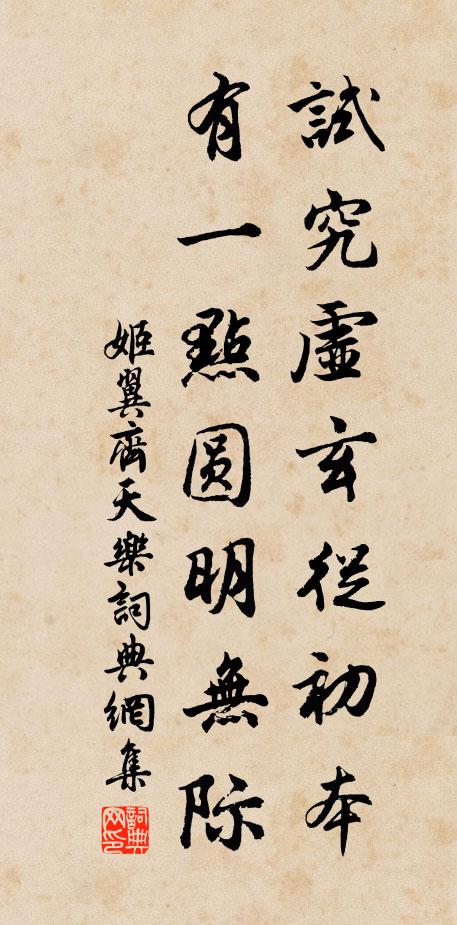 試究虛玄從初本
有一點圓明無际
姬翼齊天樂詞典網集
詞典网印